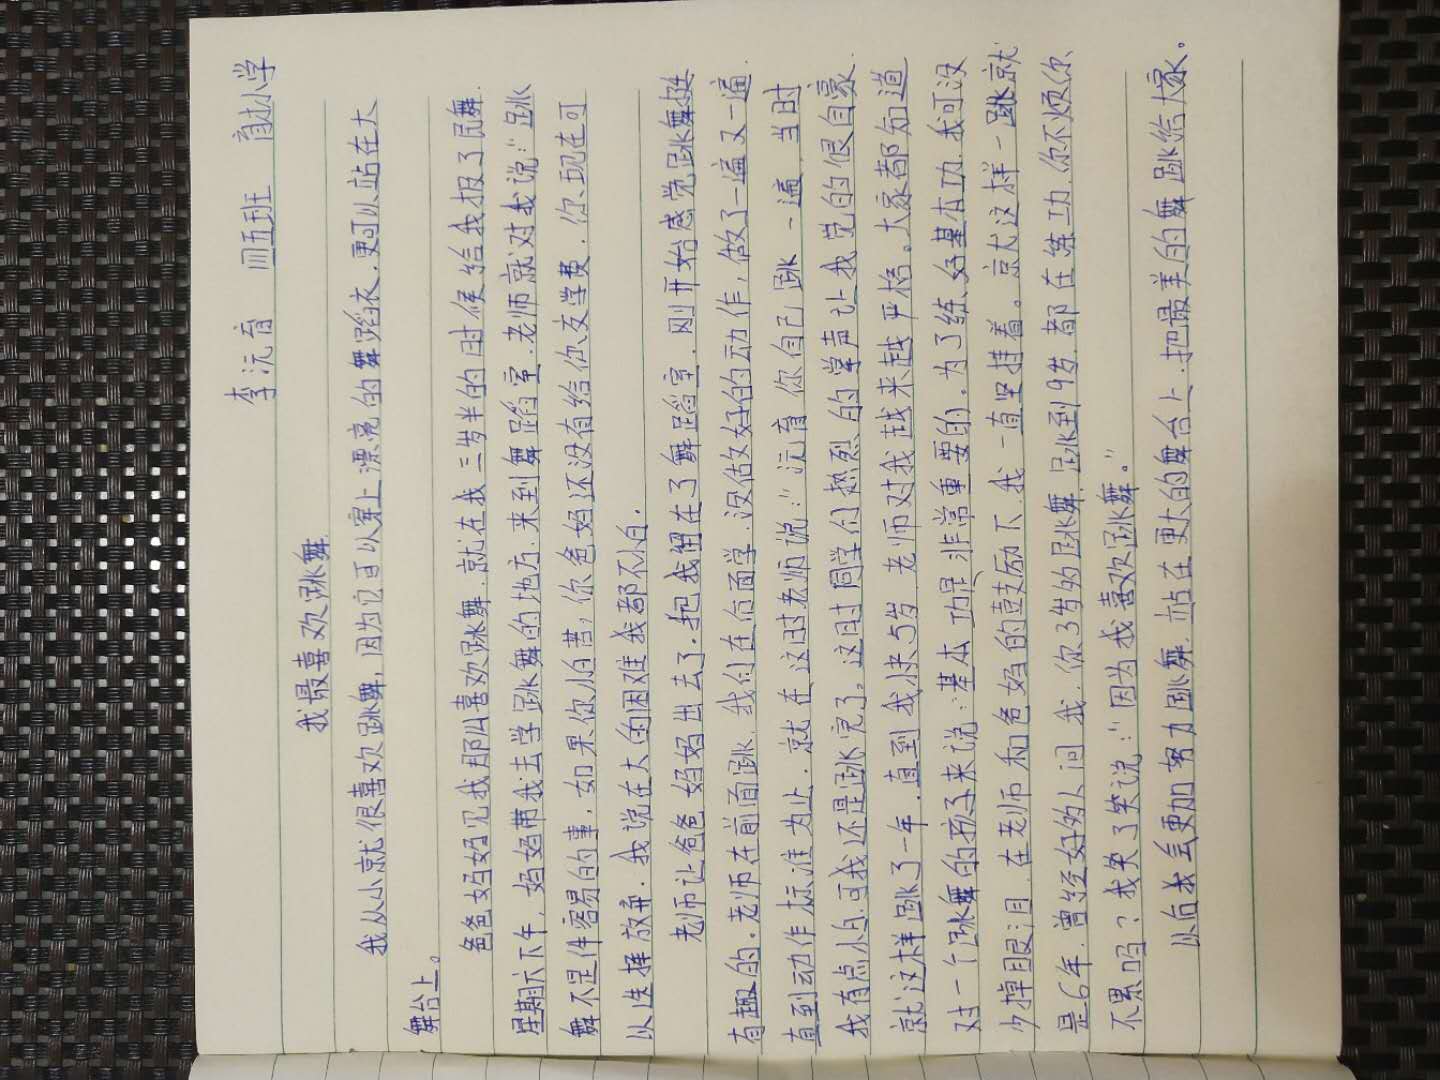 李沅育 四五班 育林小学
我最喜欢跳舞
我从小就很喜欢跳舞,因为它可以穿上漂亮的舞蹈衣.更可以站在大
舞台上。
爸爸妈妈见我那么喜欢跳舞.就在我三岁半的时候给我报了民舞.
星期六下午,妈妈带我去学跳舞的地方.来到舞蹈室.老师就对我说:"跳
舞不是件容易的事,如果你怕苦,你爸妈还没有给你交学费.你现在可
以选择放弃.我说在大的困难我都不怕.
老师让爸爸妈妈出去了.把我留在了舞蹈室.刚开始感觉跳舞挺
有趣的。老师在前面跳.我们在后面学.没做好的动作,做了一遍又一遍.
直到动作标准为止.就在这时老师说:"沅育你自己跳一遍.当时
我有点小怕.可我还是跳完了。这时同学们热烈的掌声让我觉的很自豪.
就这样跳了一年.直到我快5岁.老师对我越来越严格。大家都知道
对一个跳舞的孩子来说:基本功是非常重要的.为了练好基本功.我可没
少掉眼泪.在老师和爸妈的鼓励下.我一直坚持着。就这样一跳就
是6年.曾经好多人问我.你3岁多跳舞.跳到9岁.都在练功.你不烦你
不累吗?我笑了笑说:"因为我喜欢跳舞。"
以后我会更加努力跳舞.站在更大的舞台上.把最美的舞跳给大家。